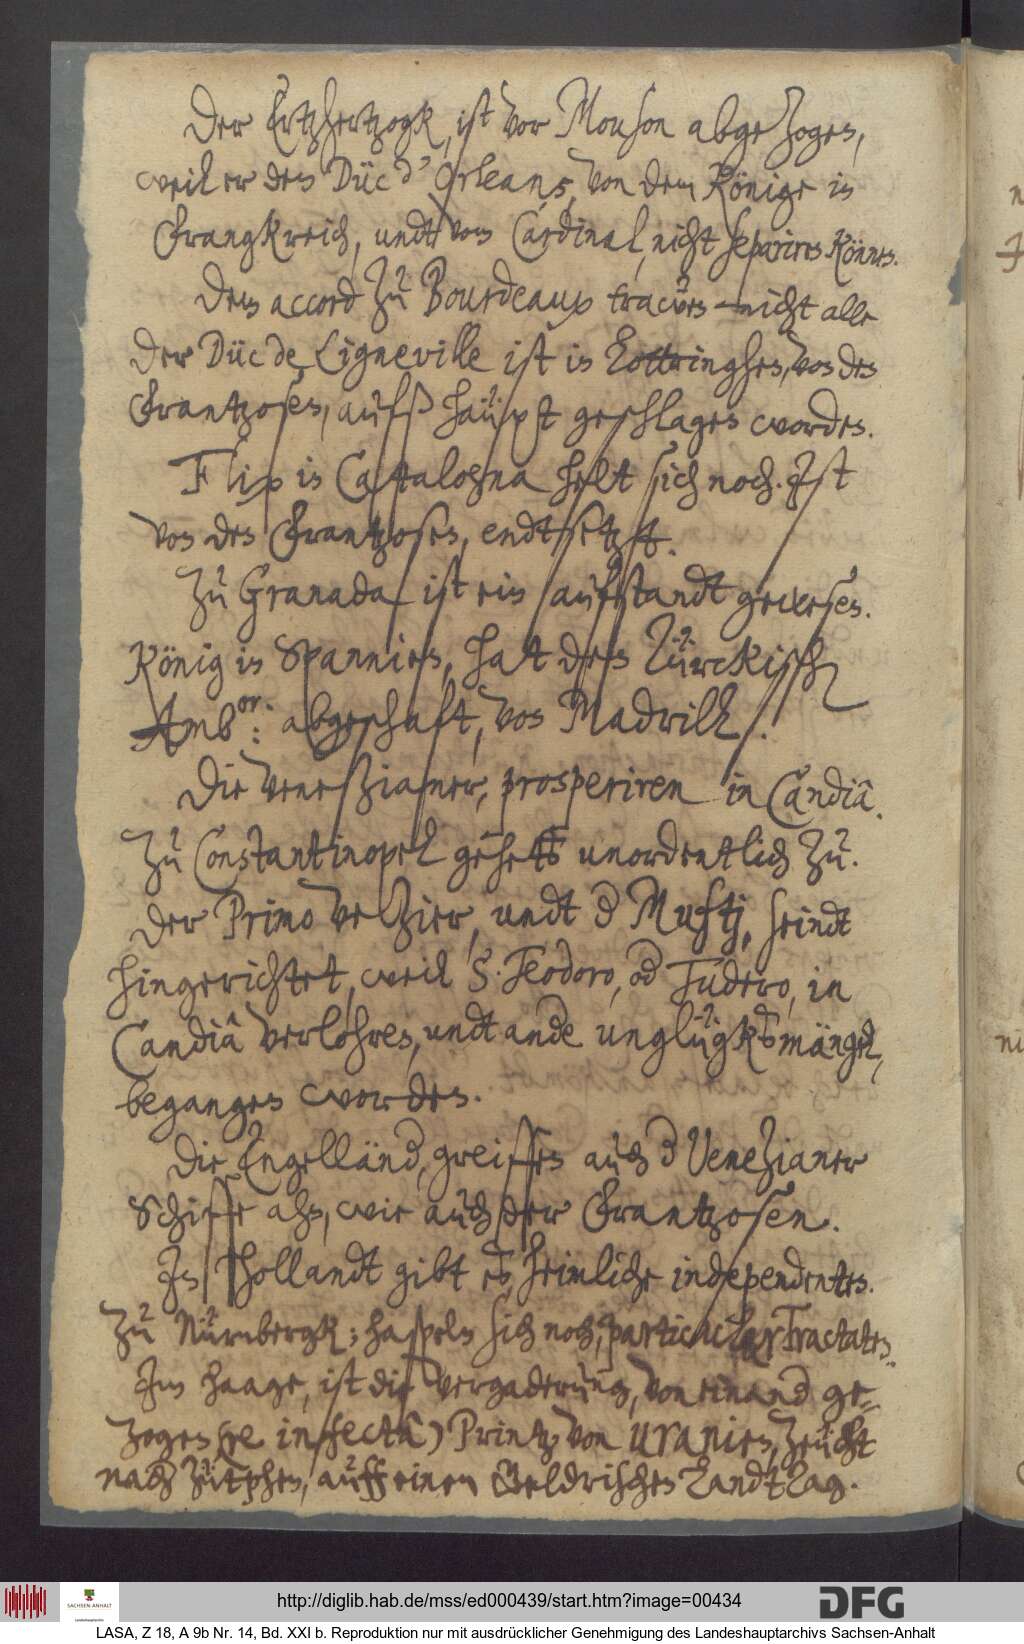 Der Ertzhertzogk, ist vor Mouson abgezogen,
weil er den Düc d'Orleans, von dem Könige in
Frangkreich, undt vom Cardinal, nicht separiren können.
Dem accord zu Bourdeaux trawen nicht alle
Der Düc de Ligneville ist in Lottringhen, von den
Frantzosen, aufs häupt geschlagen worden.
Flix in Cattalohna helt sich noch. Ist
von den Frantzosen, endtsetzt.
Zu Granada ist ein aufstandt gewesen.
König in Spannien, hat den Türckisch
Amb<sup>or</sup>: abgeschaft, von Madrill.
Die Venezianer, prosperiren in Candiâ.
Zu Constantinopel gehets unordentlich zu.
Der Primo Vezier, undt d Muftj, seindt
hingerichtet, weil S. Teodoro, od Tudero, in
Candiâ verlohren, undt ande unglügksmängel,
begangen worden.
Die Engelländ, greiffen auch d Venezianer
Schiffe ahn, wie auch der Frantzosen.
In Hollandt gibt es, heimliche independenten.
Zu Nürnbergk; haspeln sich noch, particular Tractaten.
Im Haage, ist die Vergaderung, von einand ge-
zogen (re infectâ) Printz von Uranien, zeucht
nach Zütphen, auff einen Geldrischen Landt Tag.
http://diglib.hab.de/mss/ed000439/start.htm?image=00434
DFG
SACHSEN-ANHALT
Landeshauptarchiv
LASA, Z 18, A 9b Nr. 14, Bd. XXI b. Reproduktion nur mit ausdrücklicher Genehmigung des Landeshauptarchivs Sachsen-Anhalt